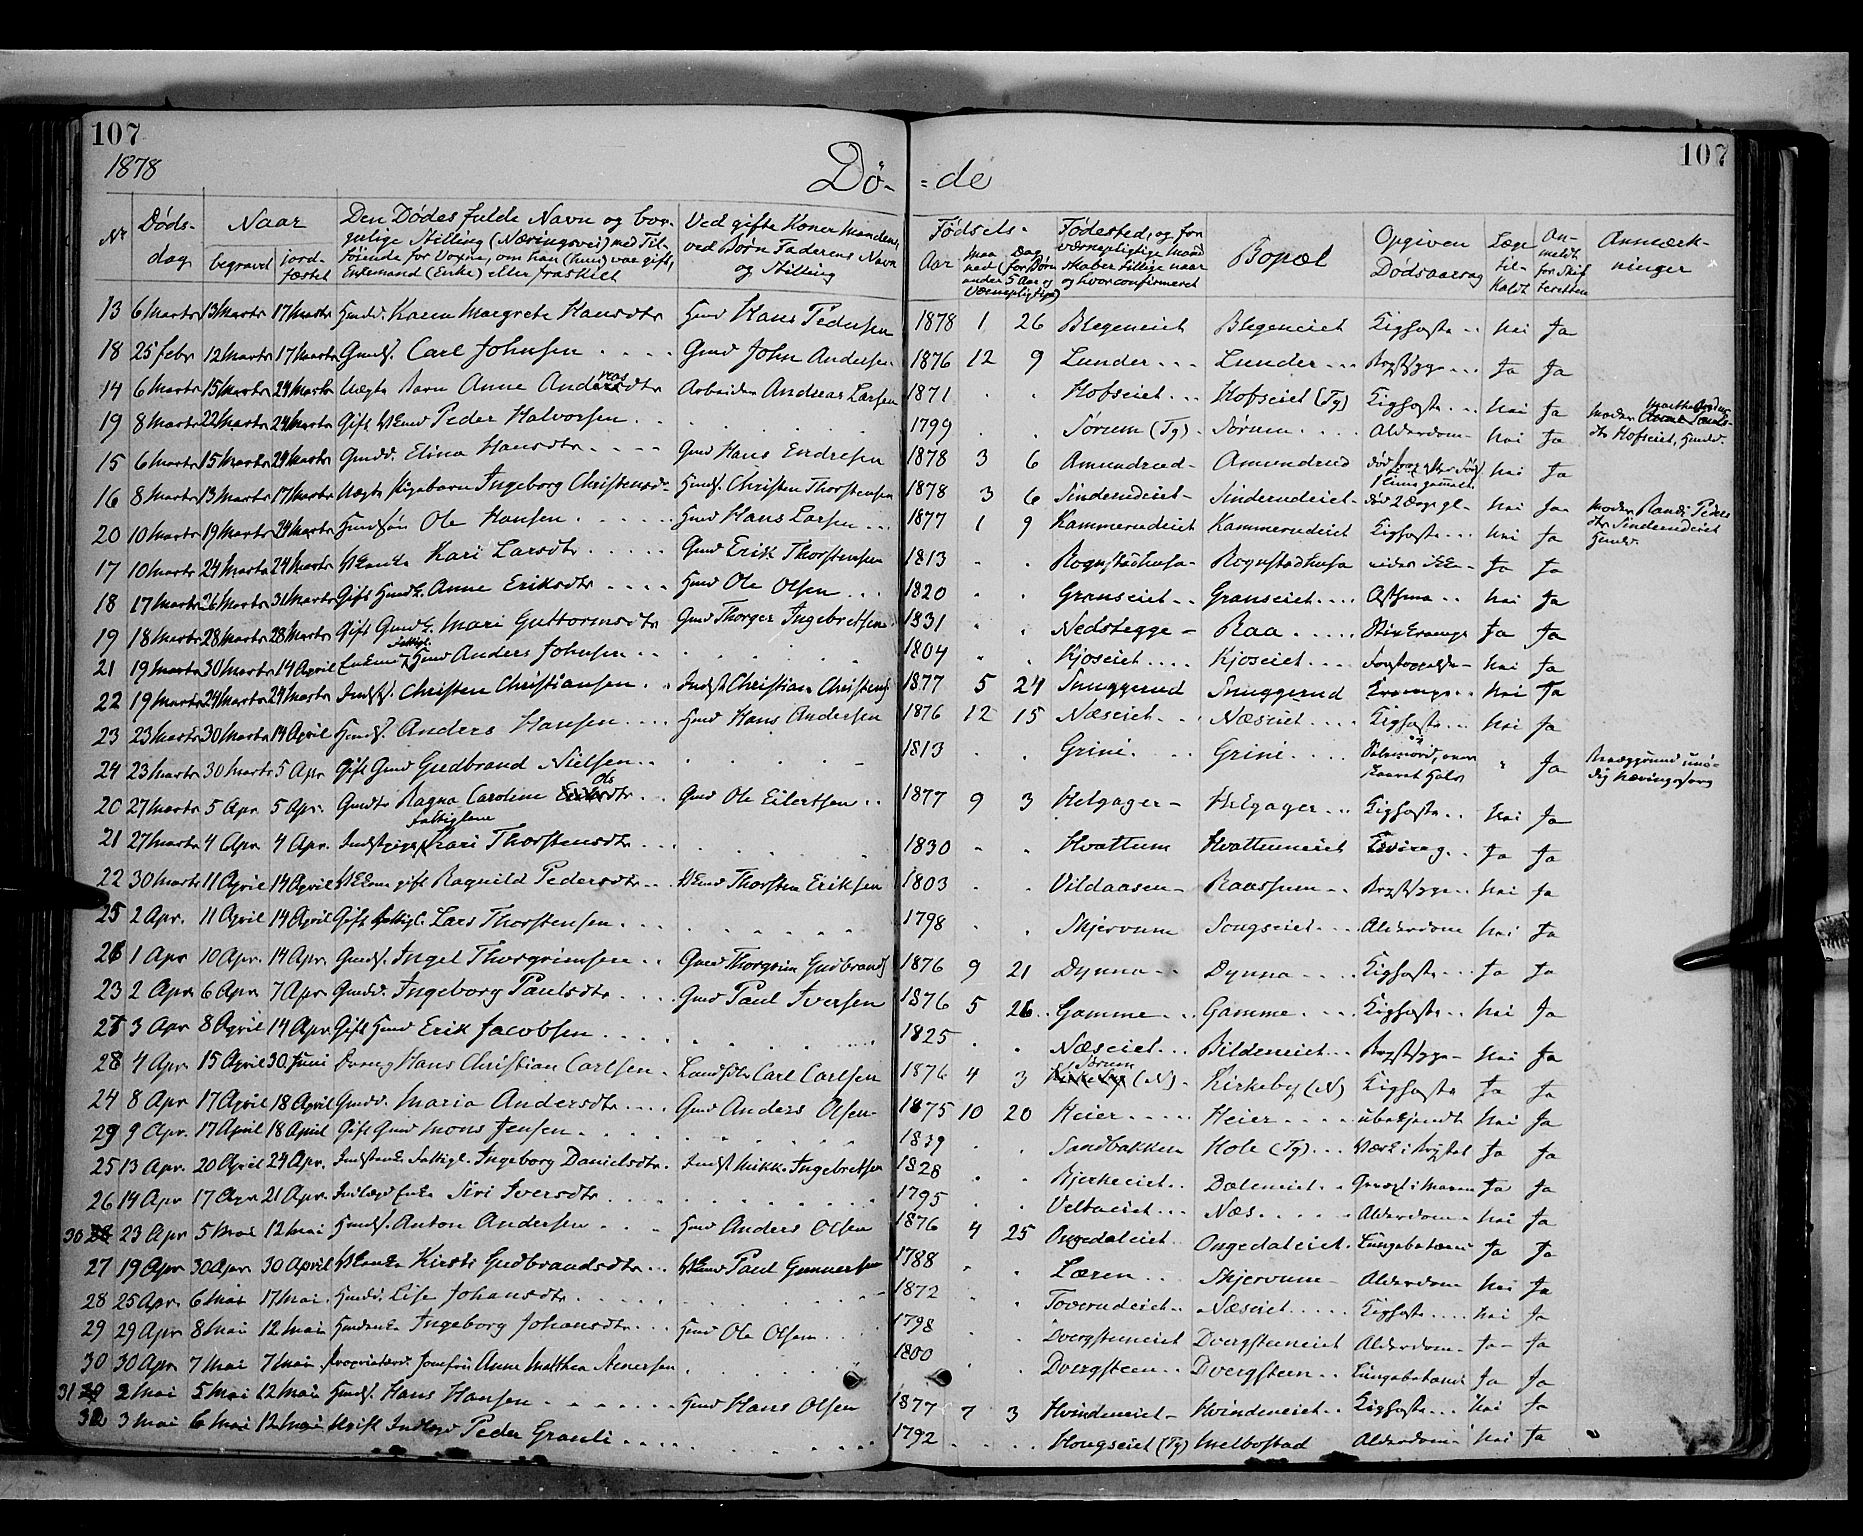 107
107
1878
Dø- =de
Nr Dødsdag Naar begravet jordfæstet Den Dødes fulde Navn og borgerlige Stilling (Næringsvei) med Tilføiende for Voxne, om han (hun) var gift, Enkemand (Enke) eller fraskilt Ved gifte Koner Mandens, ved Børn Faderens Navn og Stilling Fødsels- Aar Maaned Dag (for Børn under 5 Aar og Værnepligtige) Fødested, og for værnepligtige Mandskaber tillige naar og hvor confirmeret Bopæl Opgiven Dødsaarsag Læge tilkaldt Anmeldt for Skifteretten Anmærkninger
13 6 Marts 13 Marts 17 Marts Husd. Karen Margrete Hansdtr Husd Hans Pedersen 1878 1 26 Blegeneiet Blegeneiet Kighoste .. nei Ja
18 25 febr 12 Marts 17 Marts Gmds. Carl Johnsen .... Gmd John Andersen 1876 12 9 Lunder ... Lunder ... Brystsyge ... Ja Ja
14 6 Marts 15 Marts 24 Marts Uægte Barn Anne Andreasdtr Arbeider Andreas Larsen 1871 . . Hofseiet ... Hofseiet (Tg) Kighoste ... nei Ja
19 8 Marts 22 Marts 24 Marts Gift Peder Halvorsen .. 1799 . . Sørum (Tg) . Sørum .... Alderdom - nei Ja
15 6 Marts 15 Marts 24 Marts Gmdd. Elina Hansdtr .... Gmd Hans Endresen 1878 3 6 Amundrud - Amundrud nei Ja
16 8 Marts 13 Marts 17 Marts Uægte Pigebarn Ingeborg Christensd. Husds. Christen Thorstensen 1878 3 6 Sinderudeiet - Sinderudeiet - død 2 Dage gl - nei Ja moder Randi Pedersdtr Sinderudeiet
20 10 Marts 19 Marts 24 Marts Husdsøn Ole Hansen ..... Husd Hans Larsen ... 1877 1 9 Kammerudeiet Kammerudeiet Kighoste ... nei Ja
17 10 Marts 24 Marts 24 Marts Kari Larsdtr ..... Gmd Erik Thorstensen 1813 . . Rognstadhusa - Rognstadhusa Ja Ja
18 17 Marts 26 Marts 31 Marts Gift Anne Eriksdtr .... Husd Ole Olsen ... 1820 . . Granseiet .. Granseiet .... Asthma .. nei Ja
19 18 Marts 28 Marts 28 Marts Gift Mari Guttormsdtr Gmd Thorger Ingebretsen 1831 . . Nedstegge - Raa ..... Ja Ja
21 19 Marts 30 Marts 14 April Enkem Fattigl. Husd Anders Johnsen .. 1804 . . Kjoseiet .... Kjoseiet .... nei Ja
22 19 Marts 24 Marts 24 Marts Indsts. Christen Christiansen .. Indst Christian Christens 1877 5 24 Snuggerud Snuggerud Krampe .. nei Ja
23 23 Marts 30 Marts 14 April Husds. Anders Hansen .... Husd Hans Andersen 1876 12 15 Næseiet ... Næseiet .... Kighoste ... nei Ja
24 23 Marts 30 Marts 5 Apr Gift Gmd Gudbrand Nielsen .. 1813 Grini .... Grini .... " Ja
20 27 Marts 5 Apr 5 Apr. Gmdtr Ragna Caroline Olsdtr .. Gmd Ole Eilertsen .. 1877 9 3 Helgager - Helgager ... Kighoste .. nei Ja
21 27 Marts 4 Apr 4 Apr. Indstpige Fattiglem Kari Thorstensdtr .. 1830 . . Hvattum Hvattumeiet Ja Ja
22 30 Marts 11 April 14 April gift Ragnild Pedersdtr .. Thorsten Eriksen 1803 . . Vildaasen - Raassum .. Brystsyge .. nei Ja
25 2 Apr. 11 April 14 April Gift Fattigl. Lars Thorstensen .. 1798 . . Skjervum Songseiet ... Alderdom nei Ja
26 1 Apr 10 Apr. 14 Apr. Gmds. Ingel Thorgrimsen .. Gmd Thorgrim Gudbrands 1876 9 21 Dynna .. Dynna .... Kighoste ... Ja Ja
23 2 Apr 6 Apr 7 Apr Gmdd. Ingeborg Paulsdtr .... Gmd Paul Iversen 1876 5 26 .. Gamme ... Gamme .... Kighoste .. nei Ja
27 3 Apr 8 April 14 Apr Gift Husd Erik Jacobsen .... 1825 . . Næseiet ... Bildeneiet ... Brystsyge - nei Ja
28 4 Apr 15 April 30 Juni Dreng Hans Christian Carlsen . Carl Carlsen 1876 4 3 Sørum Kirkeby (N) - Kirkeby (N) Kighoste Ja Ja
24 8 Apr 17 April 18 April Gmdd. Maria Andersdtr .... Gmd Anders Olsen - 1875 10 20 Heier ..... Heier .... ubekjendt nei Ja
29 9 Apr. 17 April 18 April Gift Gmd Mons Jensen .... 1839 . Sandbakken Hole (Tg) ... Værk i Brystet Ja Ja
25 13 Apr. 20 April 24 Apr. Fattigl. Ingeborg Danielsdtr. Indst Mikkel Ingebretsen 1828 . . Bjerkeeiet .. Dæleneiet .. Ja Ja
26 14 Apr 17 Apr 21 Apr. Enke Siri Iversdtr .... 1795 . . Velteeiet ... Næs ..... Alderdom .. nei Ja
30 23 Apr 5 Mai 12 Mai Husds. Anton Andersen ... Husd Anders Olsen 1876 4 25 Ongedaleiet . Ongedaleiet . Ja Ja
27 19 Apr 30 Apr 30 April Kirsti Gudbrandsdtr .. Paul Gunnersen 1788 . . Læren .. Skjervum - Alderdom nei Ja
28 25 Apr. 6 Mai 17 Mai . Husdd. Lise Johansdtr .... 1872 . . Toverudeiet .. Næseiet ..... Kighoste .... nei Ja
29 29 Apr 8 Mai 12 Mai Husdenke Ingeborg Johansdtr ... Husd Ole Olsen .... 1798 . . Dvergsteneiet Dvergsteneiet Alderdom - Ja - Ja
30 30 Apr 7 Mai 7 Mai Jomfru Anne Matthea Stenersen . 1800 . . Dvergsteen .. Dvergsteen .. Ja Ja
31 2 Mai 5 Mai 12 Mai Husds. Hans Hansen ...... Husd Hans Olsen 1877 7 3 Hvindeneiet - Hvindeneiet .. Kighoste ... nei Ja
32 3 Mai 6 Mai 12 Mai Ugift Peder Granli .... 1792 . . Hongseiet (Tg) Melbostad Alderdom nei Ja